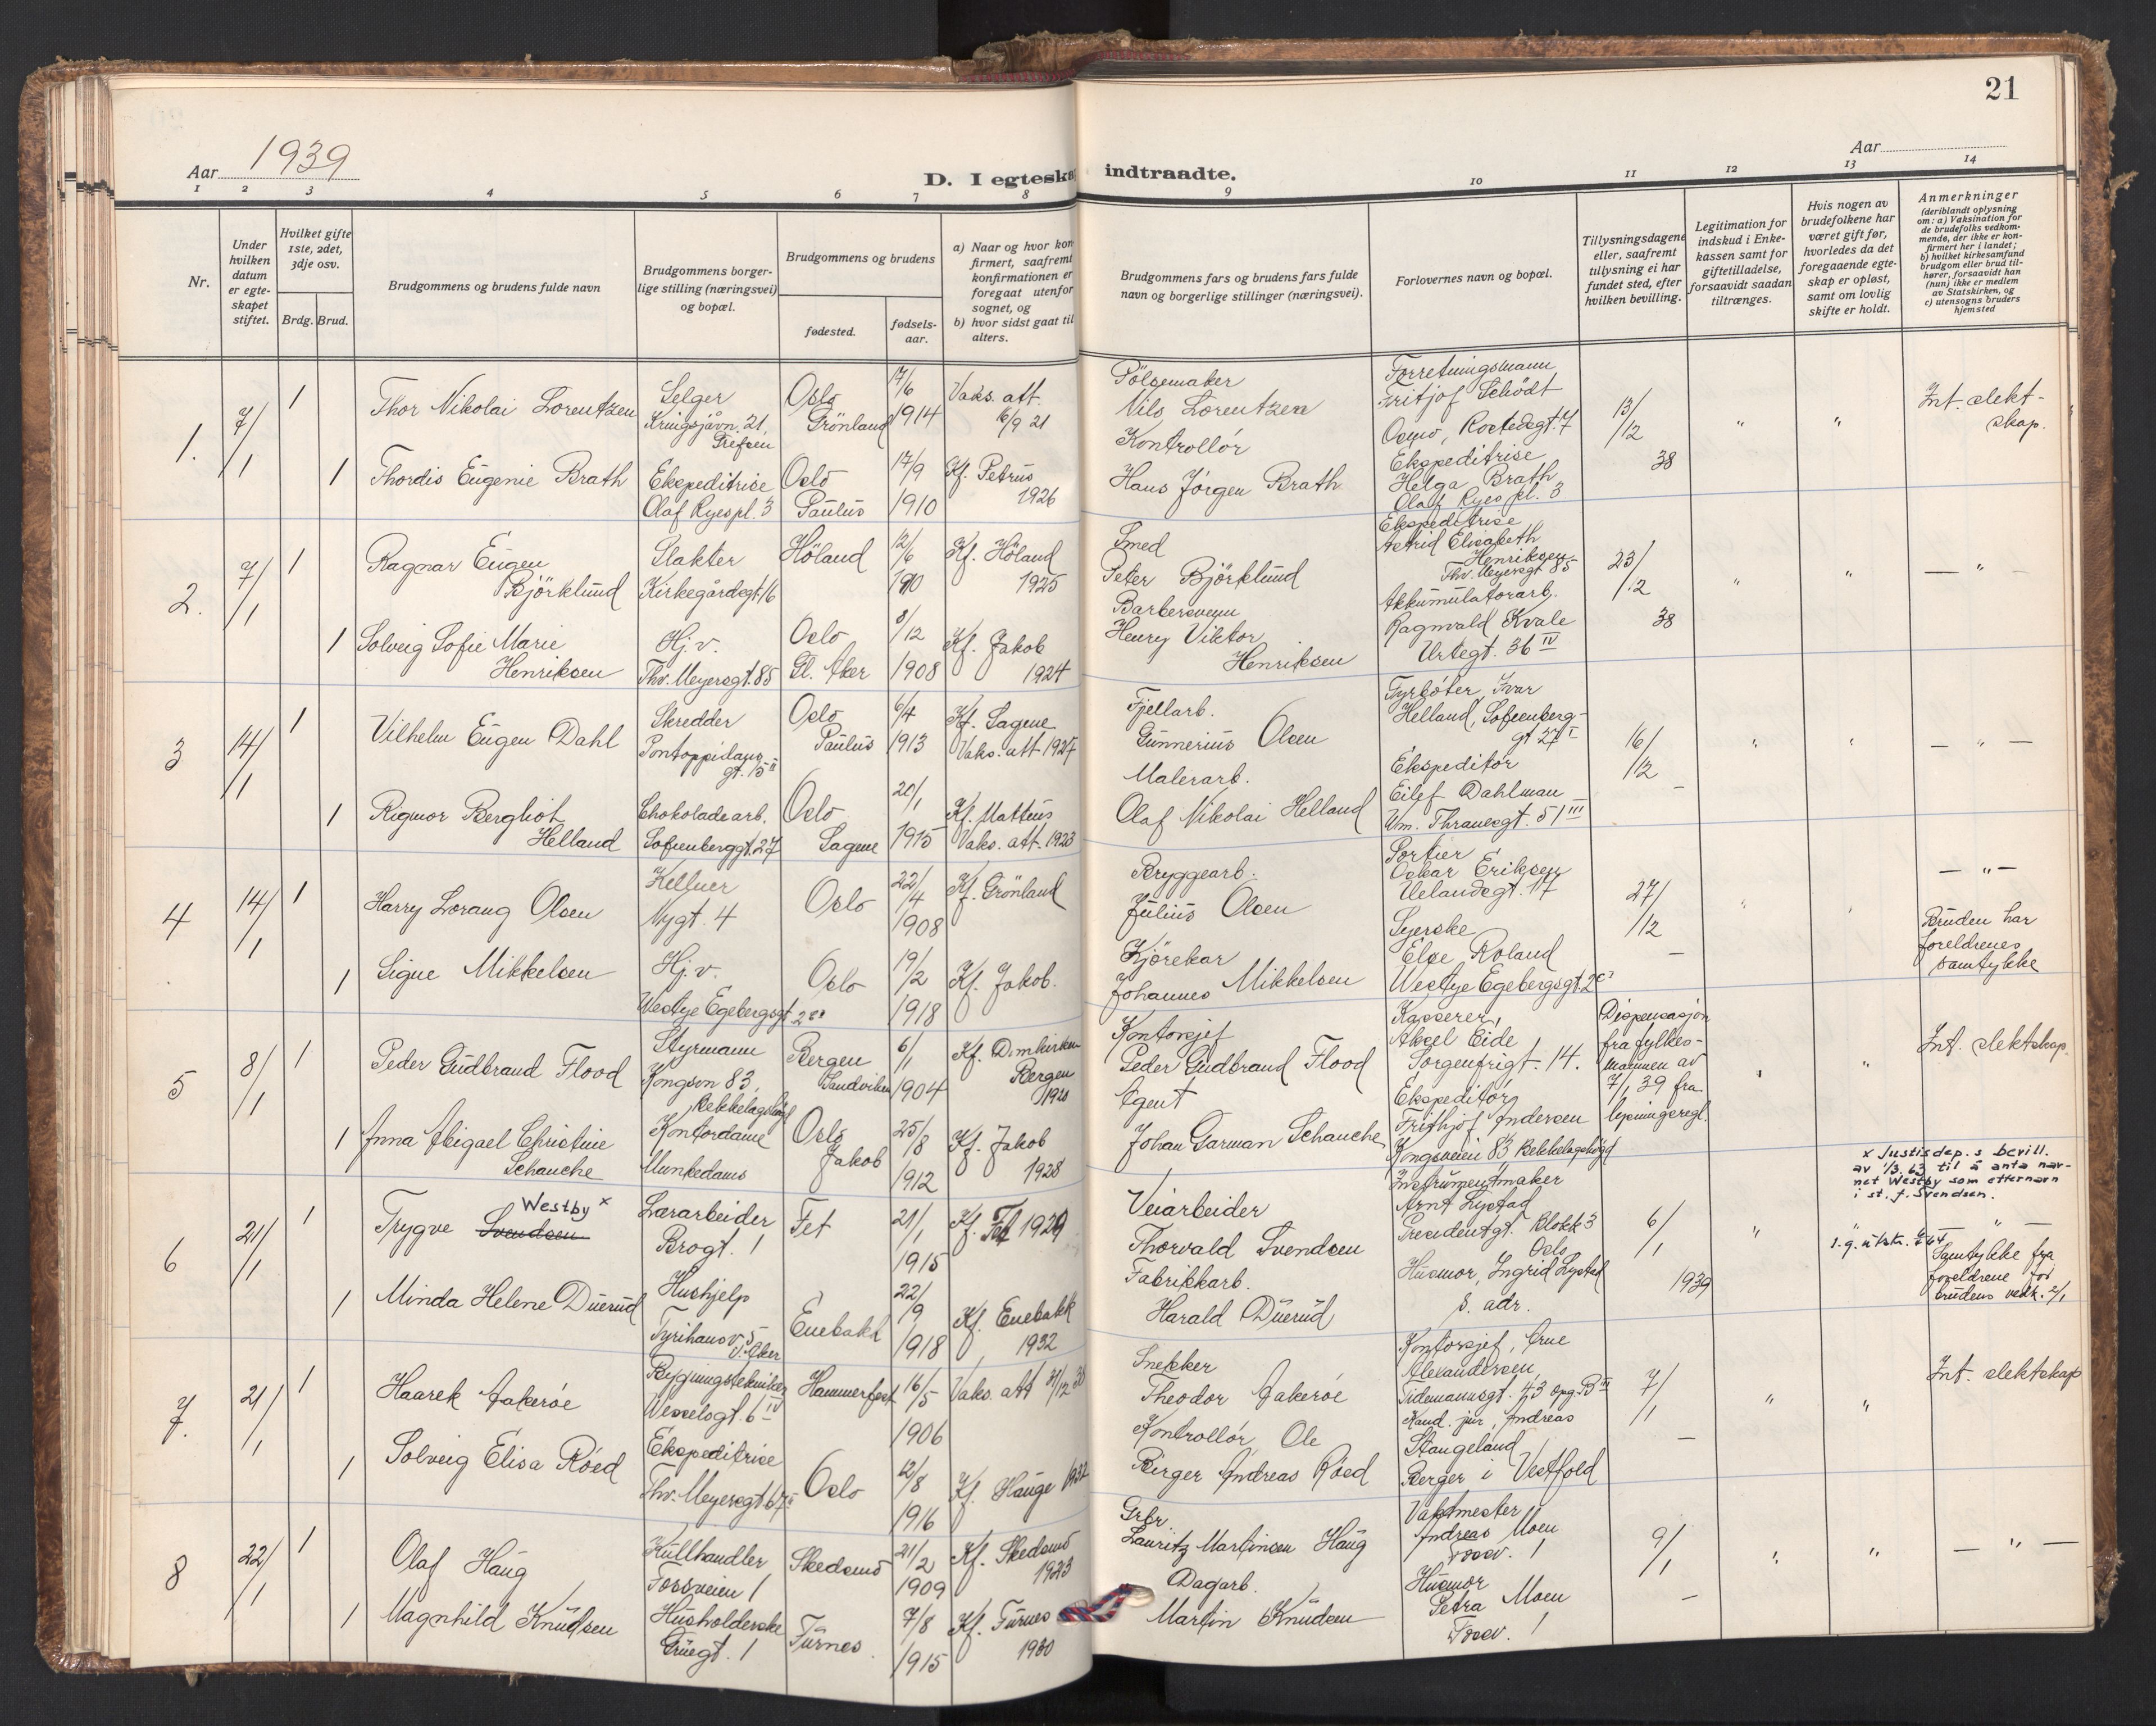 21
Aar 1939
D. I egteska indtraadte.
Aar
1 2 3 4 5 6 7 8 9 10 11 12 13 14
Nr.
Under hvilken datum er egteskapet stiftet.
Hvilket gifte 1ste, 2det, 3dje osv.
Brdg. Brud.
Brudgommens og brudens fulde navn
Brudgommens borgerlige stilling (næringsvei) og bopæl.
Brudgommens og brudens
fødested.
fødselsaar.
a) Naar og hvor konfirmert, saafremt konfirmationen er foregaat utenfor sognet, og
b) hvor sidst gaat til alters.
Brudgommens fars og brudens fars fulde navn og borgerlige stillinger (næringsvei).
Forlovernes navn og bopæl.
Tillysningsdagene eller, saafremt tillysning ei har fundet sted, efter hvilken bevilling.
Legitimation for indskud i Enkekassen samt for giftetilladelse, forsaavidt saadan tiltrænges.
Hvis nogen av brudefolkene har været gift før, hvorledes da det foregaaende egteskap er opløst, samt om lovlig skifte er holdt.
Anmerkninger
(deriblandt oplysning om: a) Vaksination for de brudefolks vedkommende, der ikke er konfirmert her i landet; b) hvilket kirkesamfund brudgom eller brud tilhører, forsaavidt han (hun) ikke er medlem av Statskirken, og c) utensogns bruders hjemsted
1. 7/1 1 Thor Nikolai Lorentzen
Selger
Kringsjåvn. 21, Grefsen
Oslo Grönland
17/6 1914
Vaks. att. 6/9 21
Pölsemaker
Nils Lorentzen
Forretningsmann
Fritjof Schödt
Oslo, Rostedsgt. 7
13/12 38
" "
Int. slektskap.
1 Thordis Eugenie Brath
Ekspeditrise
Olaf Ryespl. 3
Oslo Paulus
17/9 1910
Kf. Petrus 1926
Kontrollör
Hans Jörgen Brath
Ekspeditrise
Helga Brath
Olaf Ryespl. 3
2. 7/1 1 Ragnar Eugen Björklund
Slakter
Kirkegårdsgt. 16
Höland
12/6 1910
Kf. Höland 1925
Smed
Peter Björklund
Ekspeditrise
Astrid Elisabeth Henriksen
Thv. Meyersgt 85
23/12 38
" "
— " —
1 Solveig Sofie Marie Henriksen
Hj.v.
Thv. Meyersgt. 85
Oslo Gl. Aker
8/12 1908
Kf. Jakob 1924
Barbersvenn
Henry Viktor Henriksen
Akkumulatorarb.
Ragnvald Kvale
Urtegt. 36 IV
3 14/1 1 Vilhelm Eugen Dahl
Skredder
Pontoppidans gt. 15 II
Oslo Paulus
6/4 1913
Kf. Sagene
Vaks. att 1927
Fjellarb.
Gunnerius Olsen
Fyrböter, Ivar Helland, Sofienberggt 27 I
16/12 —
" "
— " —
1 Rigmor Bergliot Helland
Chokoladearb.
Sofienberggt. 27
Oslo Sagene
20/1 1915
Kf. Matteus
Vaks. att. 1923
Malerarb.
Olaf Nikolai Helland
Ekspeditör
Eilif Dahlman
Wm. Thranesgt. 51 III
4 14/1 1 Harry Lorang Olsen
Kellner
Nygt. 4
Oslo
22/4 1908
Kf. Grönland
Bryggearb.
Julius Olsen
Portier
Oskar Eriksen
Uelandsgt. 17
27/12 —
" "
— " —
Bruden har foreldrenes samtykke
1 Signe Mikkelsen
Hj.v.
Westye Egebergsgt 2
Oslo
19/2 1918
Kf. Jakob.
Kjörekar
Johannes Mikkelsen
Syerske
Else Roland
Westye Egebergsgt. 2
5 8/1 1 Peder Gudbrand Flood
Styrmann
Kongsvn 83, Bekkelagshögd
Bergen Sandviken
6/1 1904
Kf. Domkirken Bergen 1920
Kontorsjef
Peder Gudbrand Flood
Kasserer,
Aksel Eide
Sorgenfrigt. 14.
Dispensasjon fra fylkesmannen av 7/1 39 fra lysningsregl.
" "
Int. slektskap.
1 Anna Abigael Christine Schanche
Kontordame
Munkedams
Oslo Jakob
25/8 1912
Kf. Jakob 1928
Agent
Johan Garman Schanche
Ekspeditör
Frithjof Andersen
Kongsveien 83 Bekkelagshögd
6 21/1 1 Trygve Svendsen Westby x
Lararbeider
Brogt. 1
Fet
21/1 1915
Kf. Fet 1929
Veiarbeider
Thorvald Svendsen
Instrumentmaker
Arnt Lystad
Presidentgt. Blokk 3 Oslo
6/1 1939
"
x Justisdep.s bevill. av 1/3.63 til å anta navnet Westby som etternavn i st. f. Svendsen.
— " —
Samtykke fra foreldrene for brudens vedk. 2/1
1 Minda Helene Duerud
Hushjelp
Tyrihansv. 5 V. Aker
Enebakk
22/9 1918
Kf. Enebakk 1932
Fabrikkarb.
Harald Duerud
Husmor, Ingrid Lystad
s. adr.
7. 21/1 1 Haarek Aakeröe
Bygningstekniker
Wesselsgt. 6 IV
Hammerfest
16/5 1906
Vaks. att 31/12 38
Snekker
Theodor Aakeröe
Kontorsjef, Arne Alexandersen,
Tidemannsgt. 43 opg. B III
7/1 —
" "
Int. slektskap
1 Solveig Elisa Röed
Ekspeditrise
Thv. Meyersgt 67
Oslo
12/8 1916
Kf. Hauge 1932
Kontrollör, Ole Birger Andreas Röed
Kand. jur, Andreas Stangeland,
Berger i Vestfold
8 22/1 1 Olaf Haug
Kullhandler
Fossveien 1
Skedsmo
21/2 1909
Kf. Skedsmo 1923
Grbr.
Lauritz Martinsen Haug
Vaktmester
Andreas Moen
Fossv. 1
9/1 —
" "
— " —
1 Magnhild Knudsen
Husholderske
Gruegt. 1
Furnes.
7/8 1915
Kf. Furnes 1930
Dagarb.
Martin Knudsen
Husmor
Petra Moen
Fossv. 1